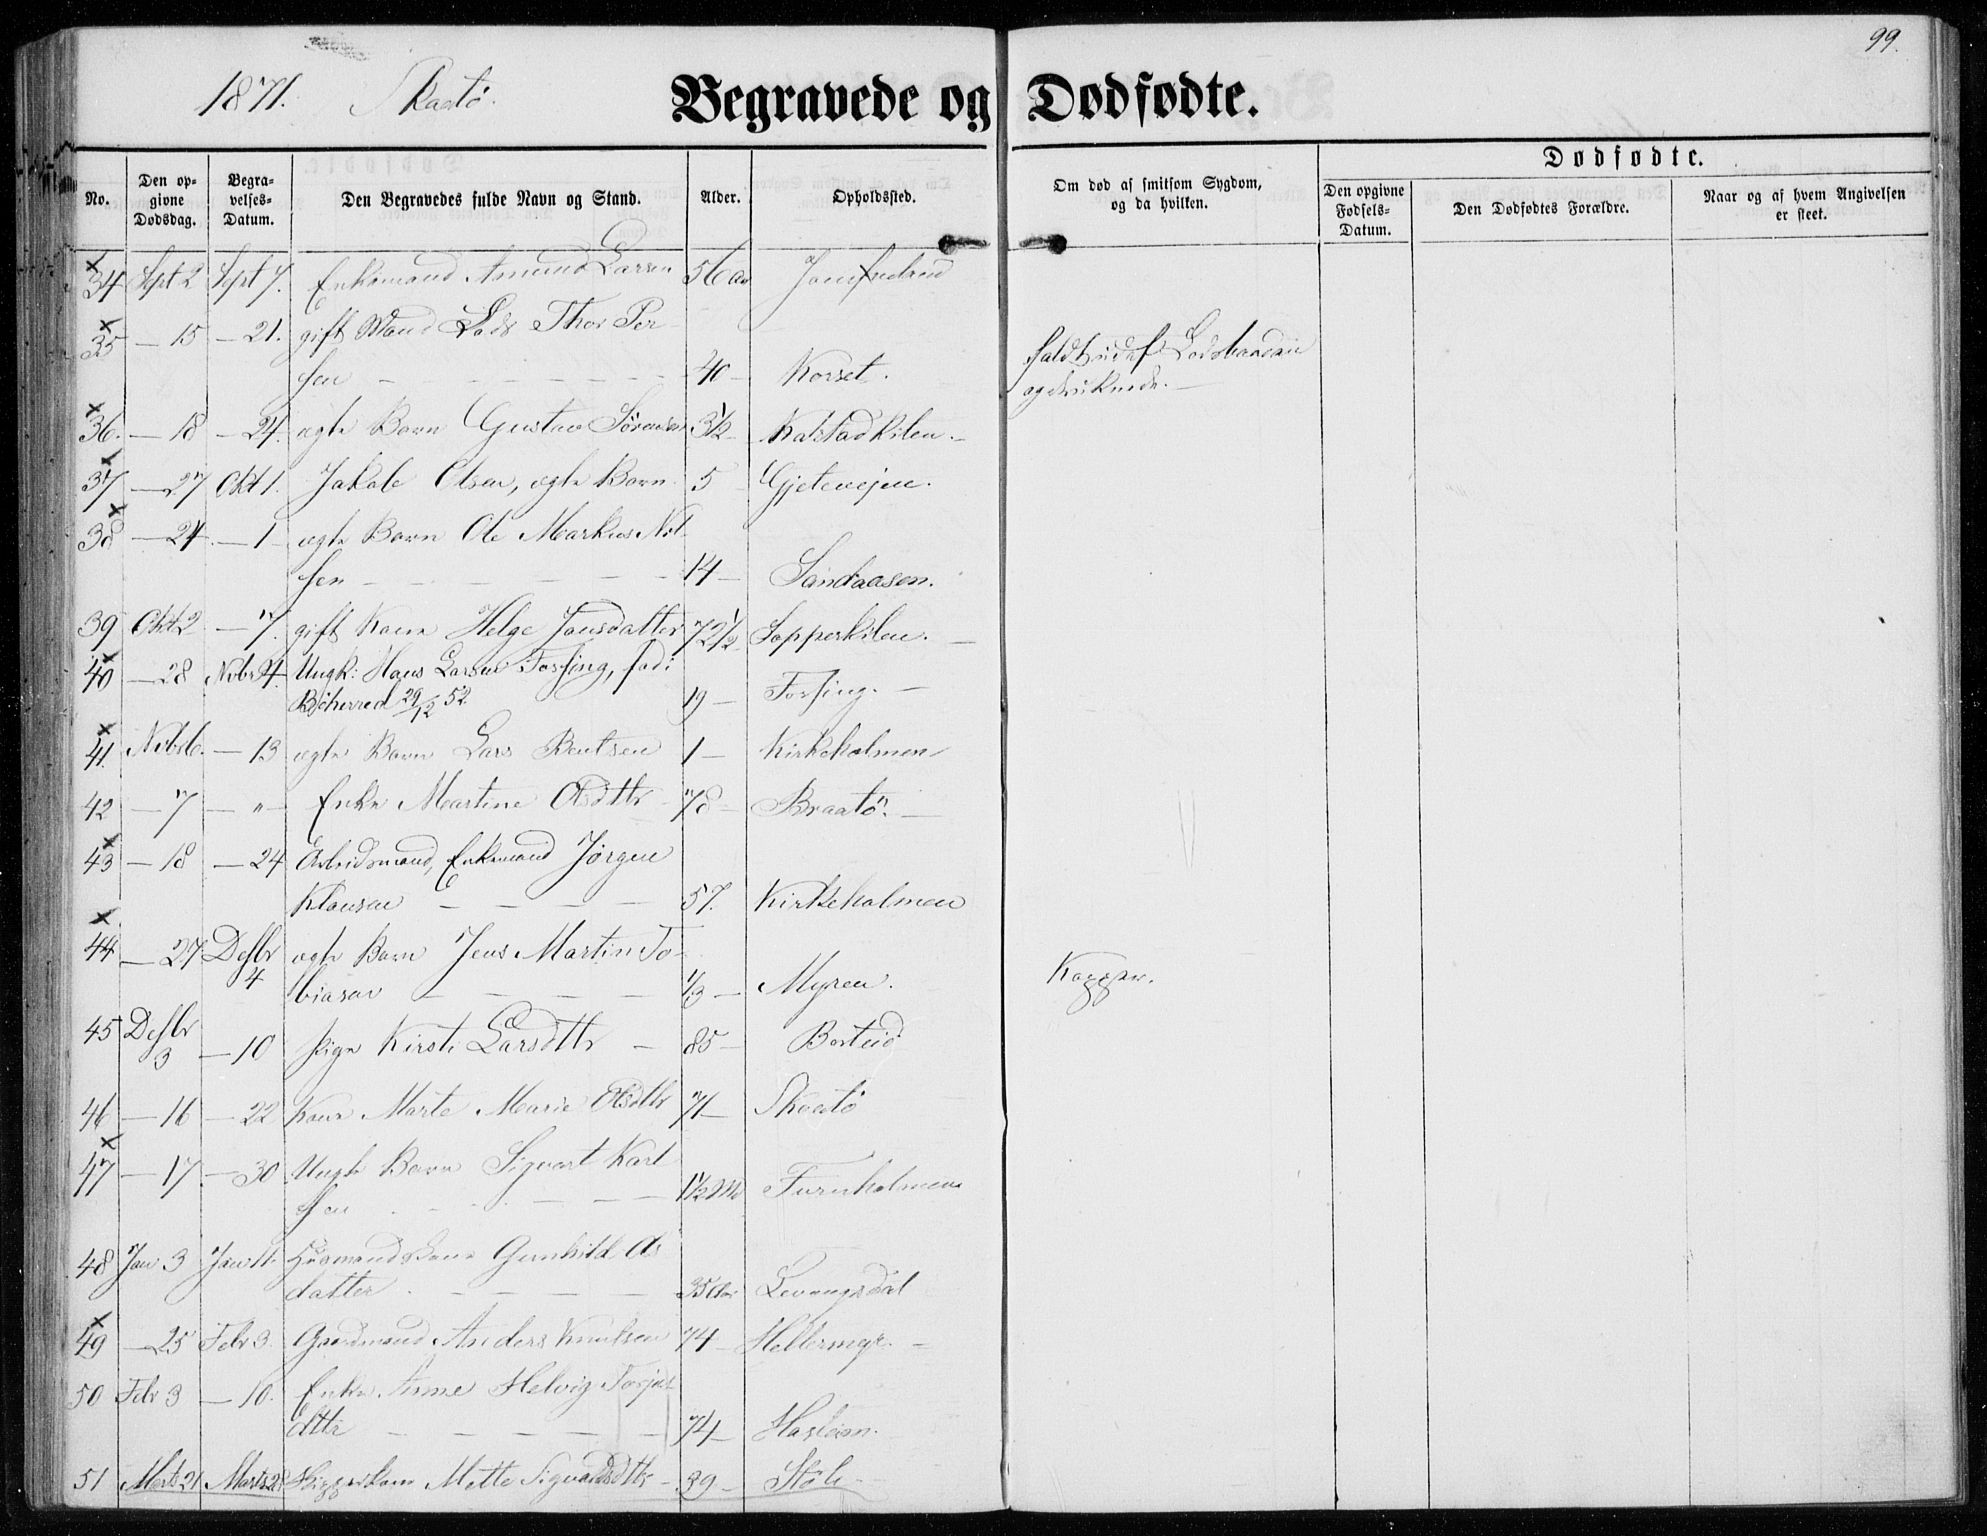 99.
1871. Skaatö.
Begravede og Dødfødte.
No. Den opgivne Dødsdag. Begravelses-Datum. Den Begravedes fulde Navn og Stand. Alder. Opholdssted. Om død af smitsom Sygdom, og da hvilken. Dødfødte. Den opgivne Fødsels-Datum. Den Dødfødtes Forældre. Naar og af hvem Angivelsen er skeet.
34 Sept 2 Sept 7. Enkemand Amund Larsen 56 aar
35 — 15 — 21. gift Mand Lods Thor Per-
sen — 40 — Korset. faldt ud af Lodsbaaden
og druknede. —
36. — 18 — 24. ægte Barn Gustav Sörensen 3½ Kalstadkilen. —
37 — 27 Okt 1. Jakob Olsen, ægte Barn 5 Gjetevejen.
38 — 24 — 1 ægte Barn Ole Markus Nil-
sen — 14 — Sandaasen.
39 Okt 2 — 7. gift Kone Helge Jonsdatter 72½ Sopperkilen. —
40 — 28 Nvbr 4. Ungk: Hans Larsen Torsing, föd i
29/12 52 19 — Torsing. —
41. Nvbr 6. — 13 ægte Barn Lars Bentsen 1 — Kirkeholmen
42 — 7 — " — Enke Martine Olsdtr 78 — Braatö. —
43 — 18 — 24 Arbeidsmand, Enkemand Jörgen
Klausen — 57. Kirkeholmen
44 — 27 Desbr 4 ægte Barn Jens Martin To-
biasen — 1/3 — Myren. Kopper.
45 Desbr 3 — 10 Pige Kirsti Larsdtr — 85 —
46 — 16 — 22 Kone Marte Marie Olsdtr 71 — Skaatö
47 — 17. — 30 Uægte Barn Sigvart Karl
sen — 1½ Md Furuholmen
48 Jan 3 Jan 11. Husmandskone Gunhild Ols
datter — 35 Aar Levangsdal
49 — 25 Febr 3. Gaardmand Anders Knutsen 74 — Hellermyr. —
50 Febr 3 — 10. Enke Anne Helvig
dttr — 74 —
51 Marts 21 Marts 28 Skipperkone Mette Sigvardsdtr — 39 — Stöle —